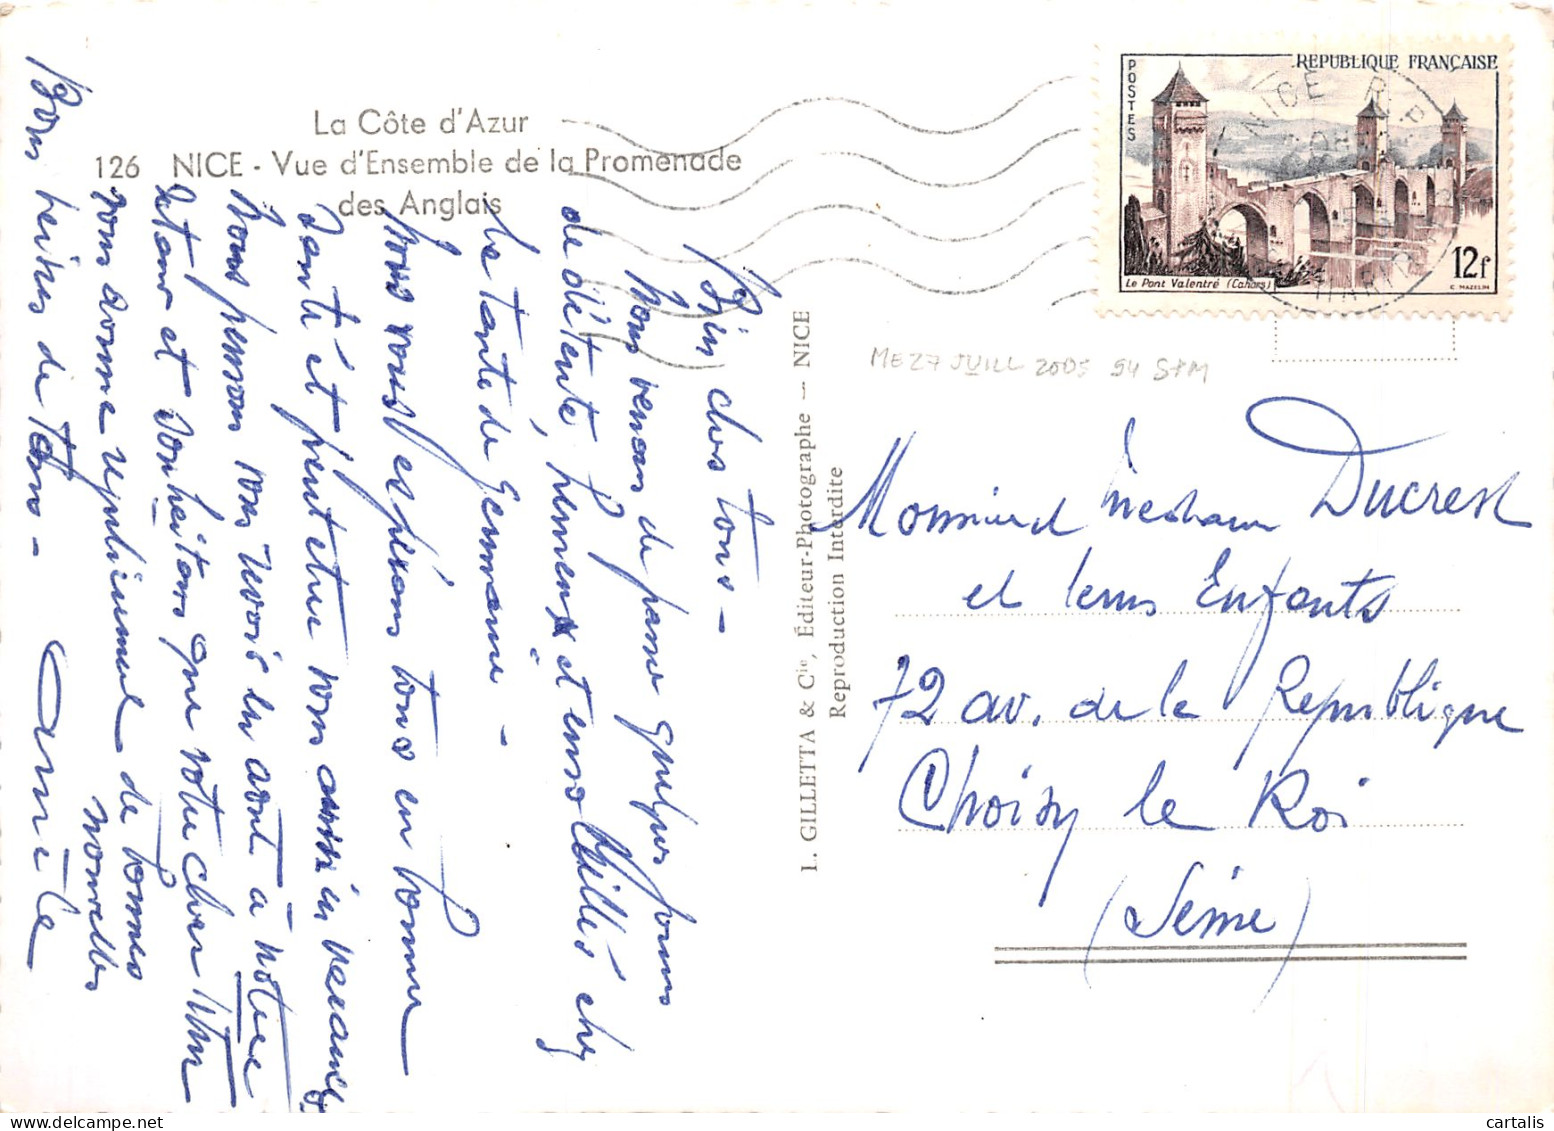 La Côte d'Azur
126 NICE - Vue d'Ensemble de la Promenade
des Anglais
Bien chers tous -
Nous venons de passer quelques jours
de détente, et ensoleillés chez
la tante de Germaine -
Nous vous espérons tous en bonne
santé et peut être vous aussi en vacances
Nous pensons vous revoir en août à notre
retour et souhaitons que votre cher
nous donne de bonnes
nouvelles
Bons baisers de tous -
L. GILLETTA & Cie, Éditeur-Photographe — NICE
Reproduction Interdite
POSTES
REPUBLIQUE FRANÇAISE
Le Pont Valentré (Cahors)
12f
C. MAZELIN
NICE R.P.
ME 27 JUILL 2005 94 SPM
Monsieur Madame Ducrest
et leurs Enfants
72 av. de la République
Choisy le Roi
(Seine)
cartalis